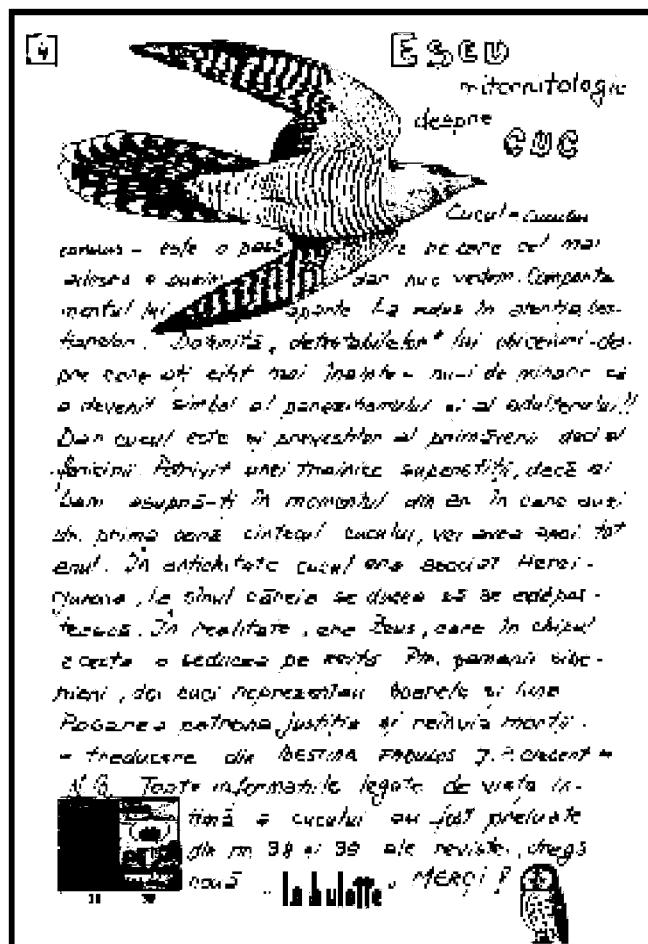 4
ESEU
mitornitologic
despre
CUC
Cucul = Cuculus
canorus - este o pasăre pe care cel mai
adesea o auzim dar nu o vedem. Comporta
mentul lui aparte l-a adus în atenția
Datorită, detestabilelor" lui obiceiuri - des-
pre care ați citit mai înainte - nu-i de mirare că
a devenit simbol al parazitismului și al adulterului!!
Dar cucul este și prevestitor al primăverii deci al
fericirii. Potrivit unei trainice superstiții, dacă ai
bani asupră-ți în momentul din an în care auzi
pt. prima oară cîntecul cucului, vei avea apoi tot
anul. În antichitate cucul era asociat Herei -
Junona, la sînul căreia se ducea să se adăpos-
tească. În realitate, era Zeus, care în chipul
acesta o seducea pe Pt. șamanii sibe-
rieni, doi cuci reprezentau Soarele și luna
Pasărea patrona justiția și reînvia morții.
- traducere din BESTIAR FABULOS J. P. Clebert -
N.B. Toate informațiile legate de viața in-
timă a cucului au fost preluate
din nr. 38 și 39 ale revistei, dragă
nouă „la hulotte" MERÇI!
38 39